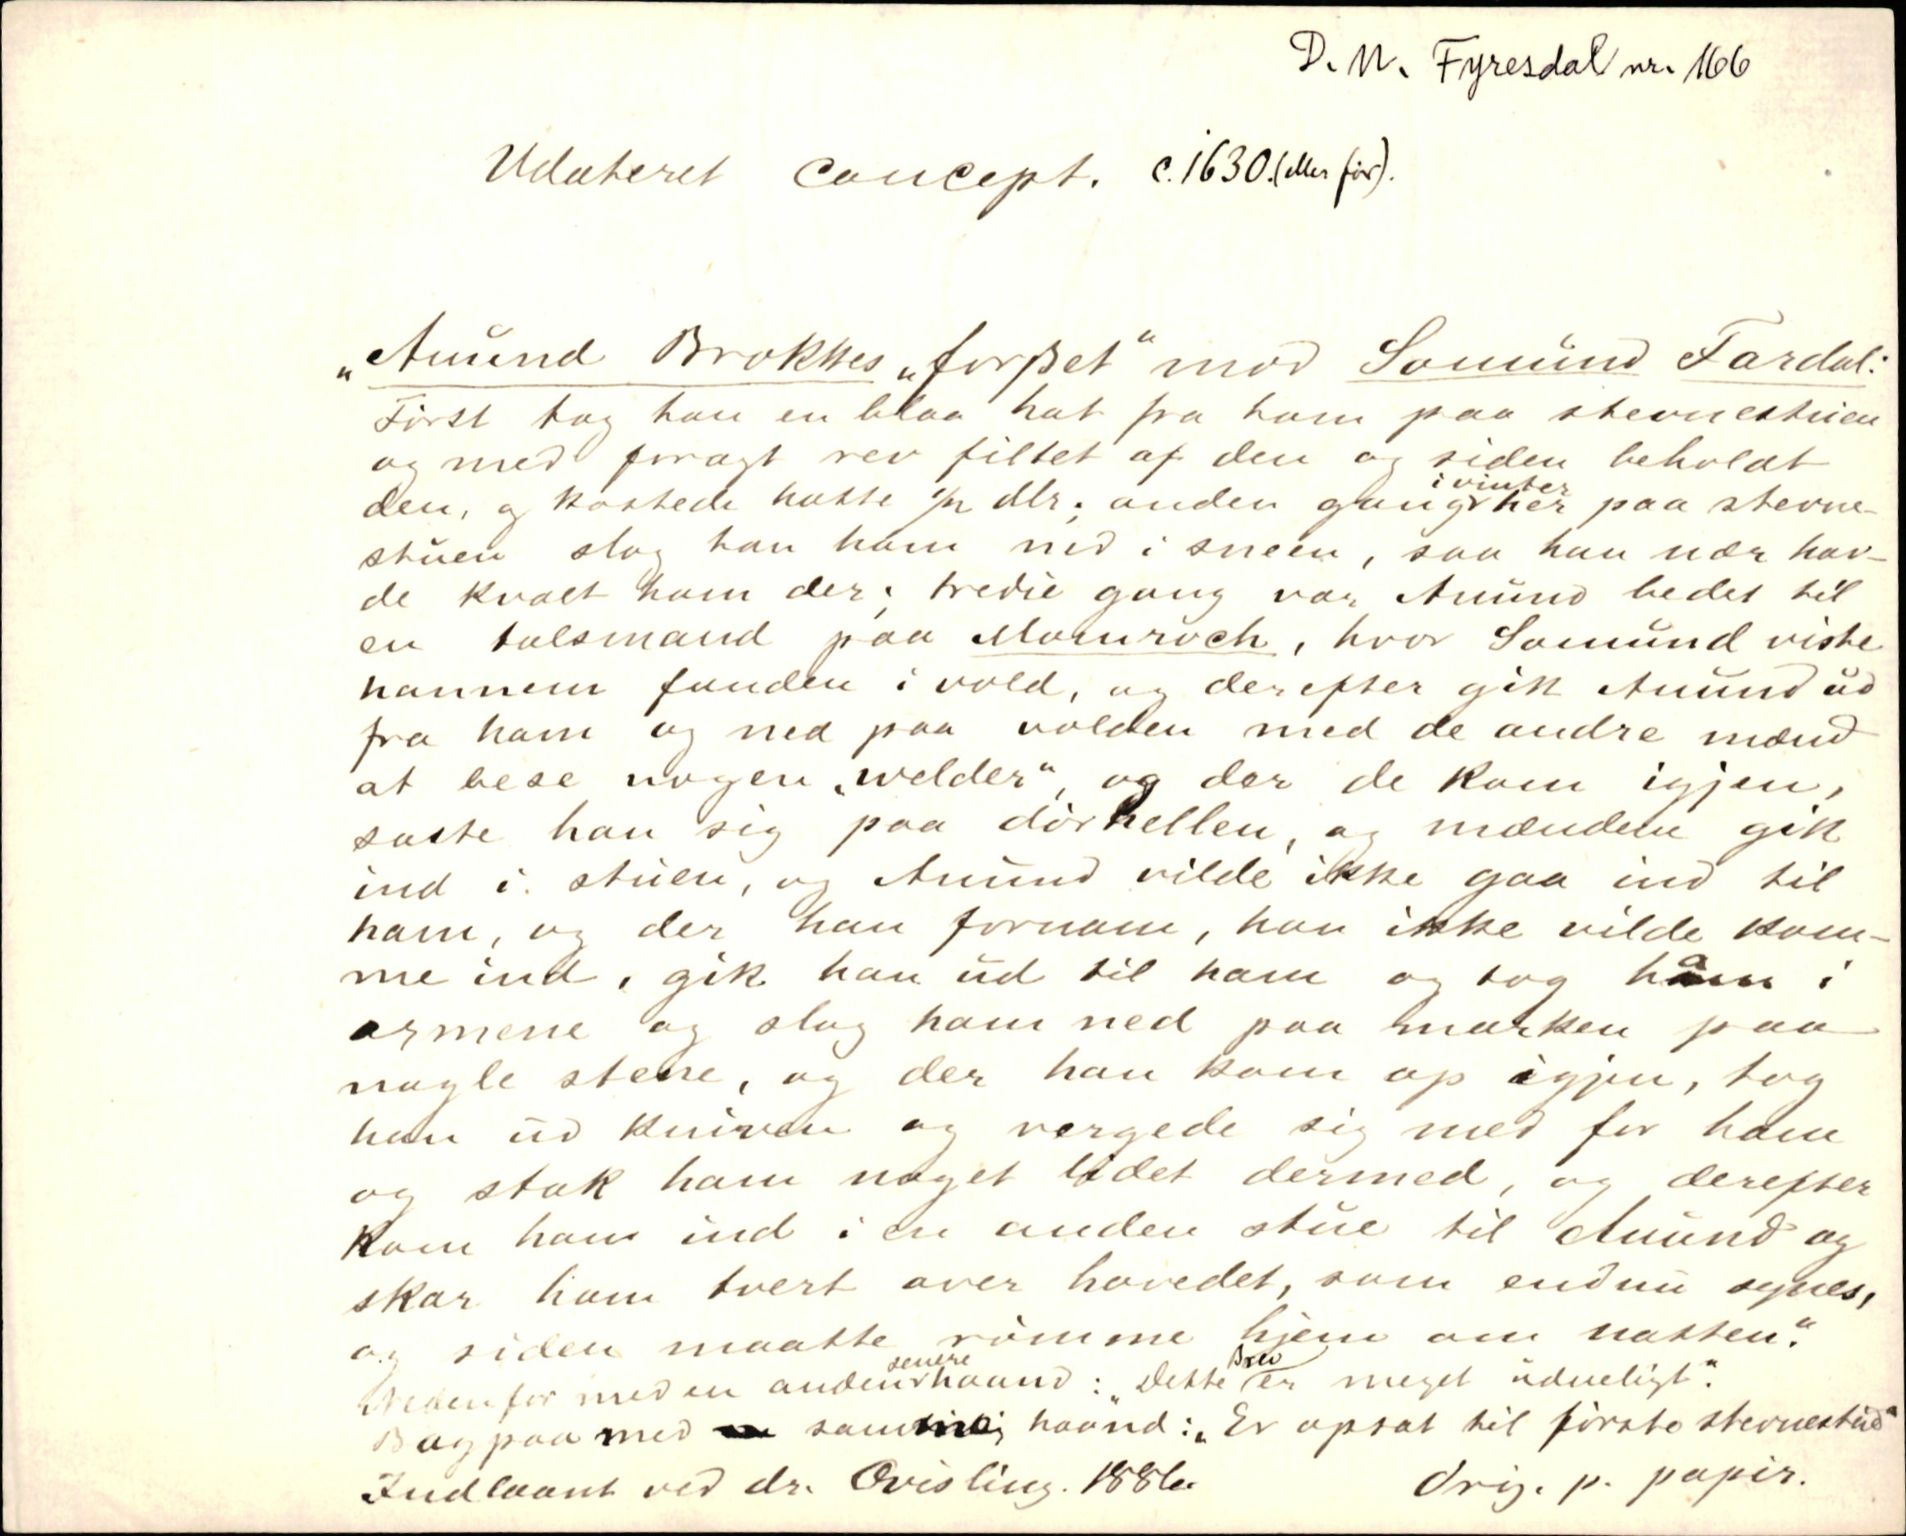 D. N. Fyresdal nr. 166
Udateret concept. c. 1630. (eller før).
„Auund Brokkes „forset“ mod Somund Fardal:
Först tog han en blaa hat fra ham paa stevnestuen
og med foragt rev filtet af den og siden beholdt
den, og kostede hatte ½ dlr; anden gang i vinter her paa stevne-
stuen slog han ham ned i sneen, saa han nær hav-
de kvalt ham der; tredie gang var Auund bedet til
en talsmand paa Momroch, hvor Somund viste
hannem fanden i vold, og derefter gik Auund ud
fra ham og ned paa volden med de andre mænd
at bese nogen „welder“, og der de kom igjen,
satte han sig paa dörhellen, og mændene gik
ind i stuen, og Auund vilde ikke gaa ind til
ham, og der han fornam, han ikke vilde kom-
me ind, gik han ud til ham og tog ham i
armene og slog ham ned paa marken paa
nogle stene, og der han kom op igjen, tog
han ud kniven og vergede sig med for ham
og stak ham noget lidet dermed, og derefter
kom ham ind i en anden stue til Auund og
skar ham tvert over hovedet, som endnu synes,
og siden maatte römme hjem om natten.“
Nedenfor med en anden senere haand: „Dette Brev er meget udueligt“.
Bagpaa med samtidig haand: „Er opsat til förste stevnestud“
Indlaant ved dr. Qvisling. 1886. Orig. p. papir.